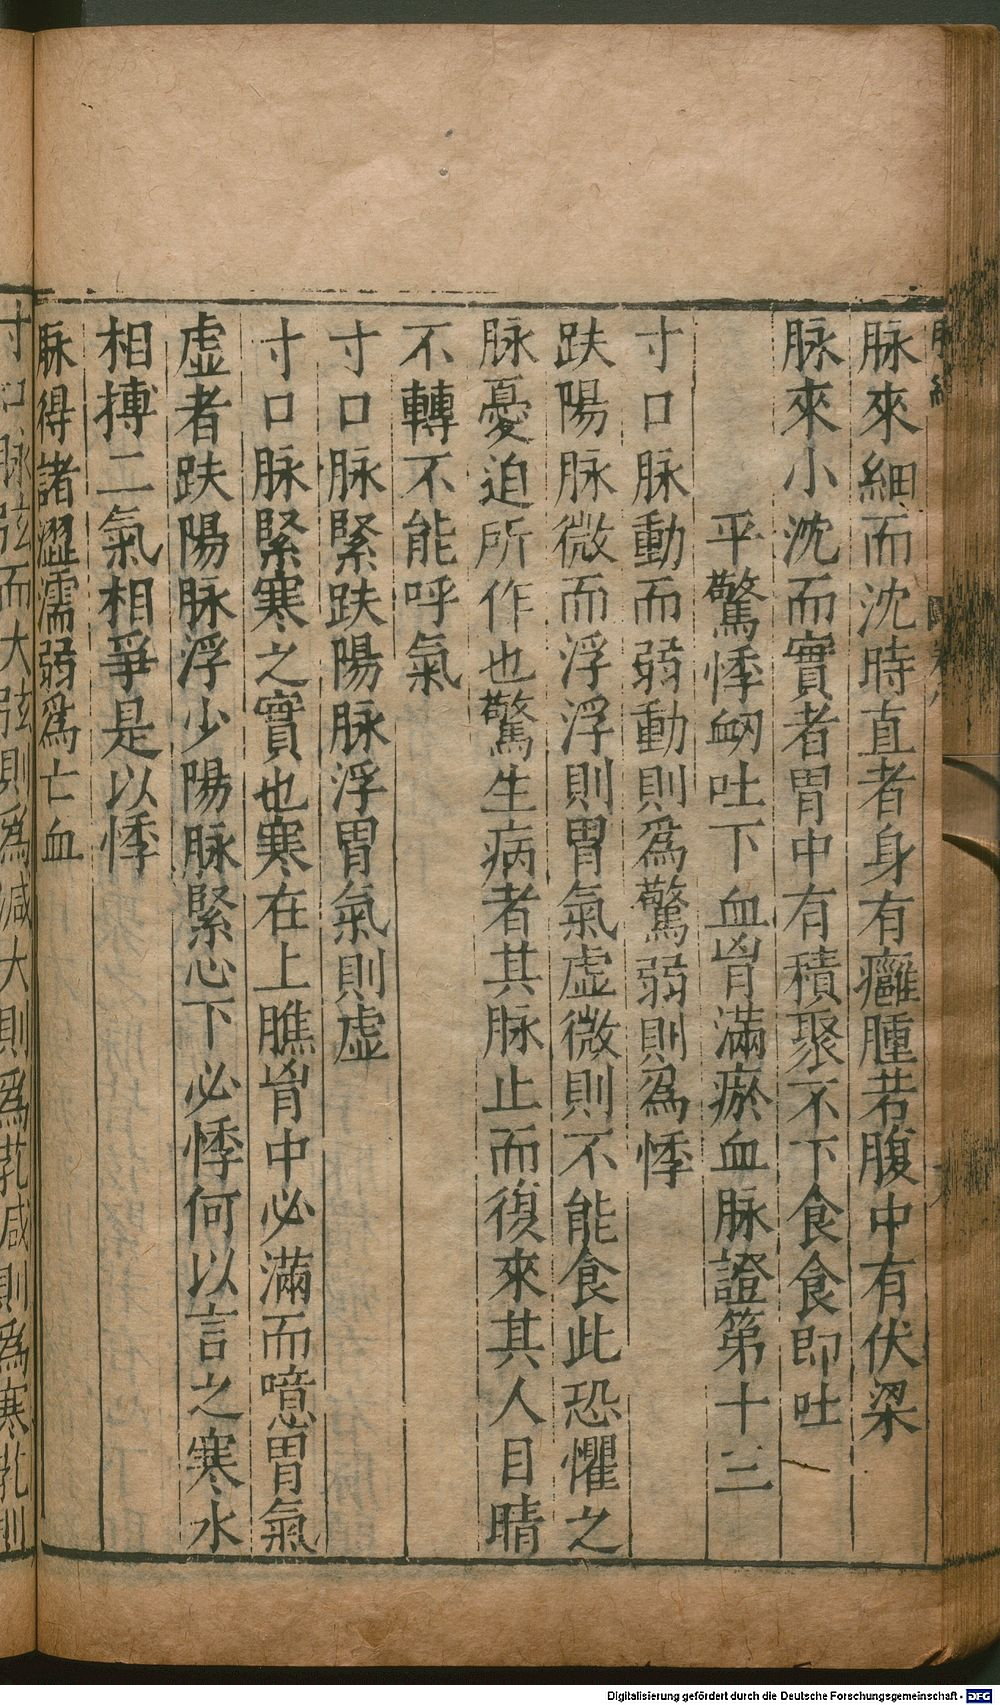 脉來細而沈時直者身有癰腫若腹中有伏梁
脉來小沈而實者胃中有積聚不下食食即吐
平驚悸衂吐下血胷滿瘀血脉證第十三
寸口脉動而弱動則爲驚弱則爲悸
趺陽脉微而浮浮則胃氣虛微則不能食此恐懼之
脉憂迫所作也驚生病者其脉止而復來其人目睛
不轉不能呼氣
寸口脉緊趺陽脉浮胃氣則虛
寸口脉緊寒之實也寒在上膲胷中必滿而噫胃氣
虛者趺陽脉浮少陽脉緊心下必悸何以言之寒水
相搏二氣相爭是以悸
脉得諸澀濡弱爲亡血
寸口脉弦而大弦則爲減大則爲芤減則爲寒芤則
Digitalisierung gefördert durch die Deutsche Forschungsgemeinschaft - DFG